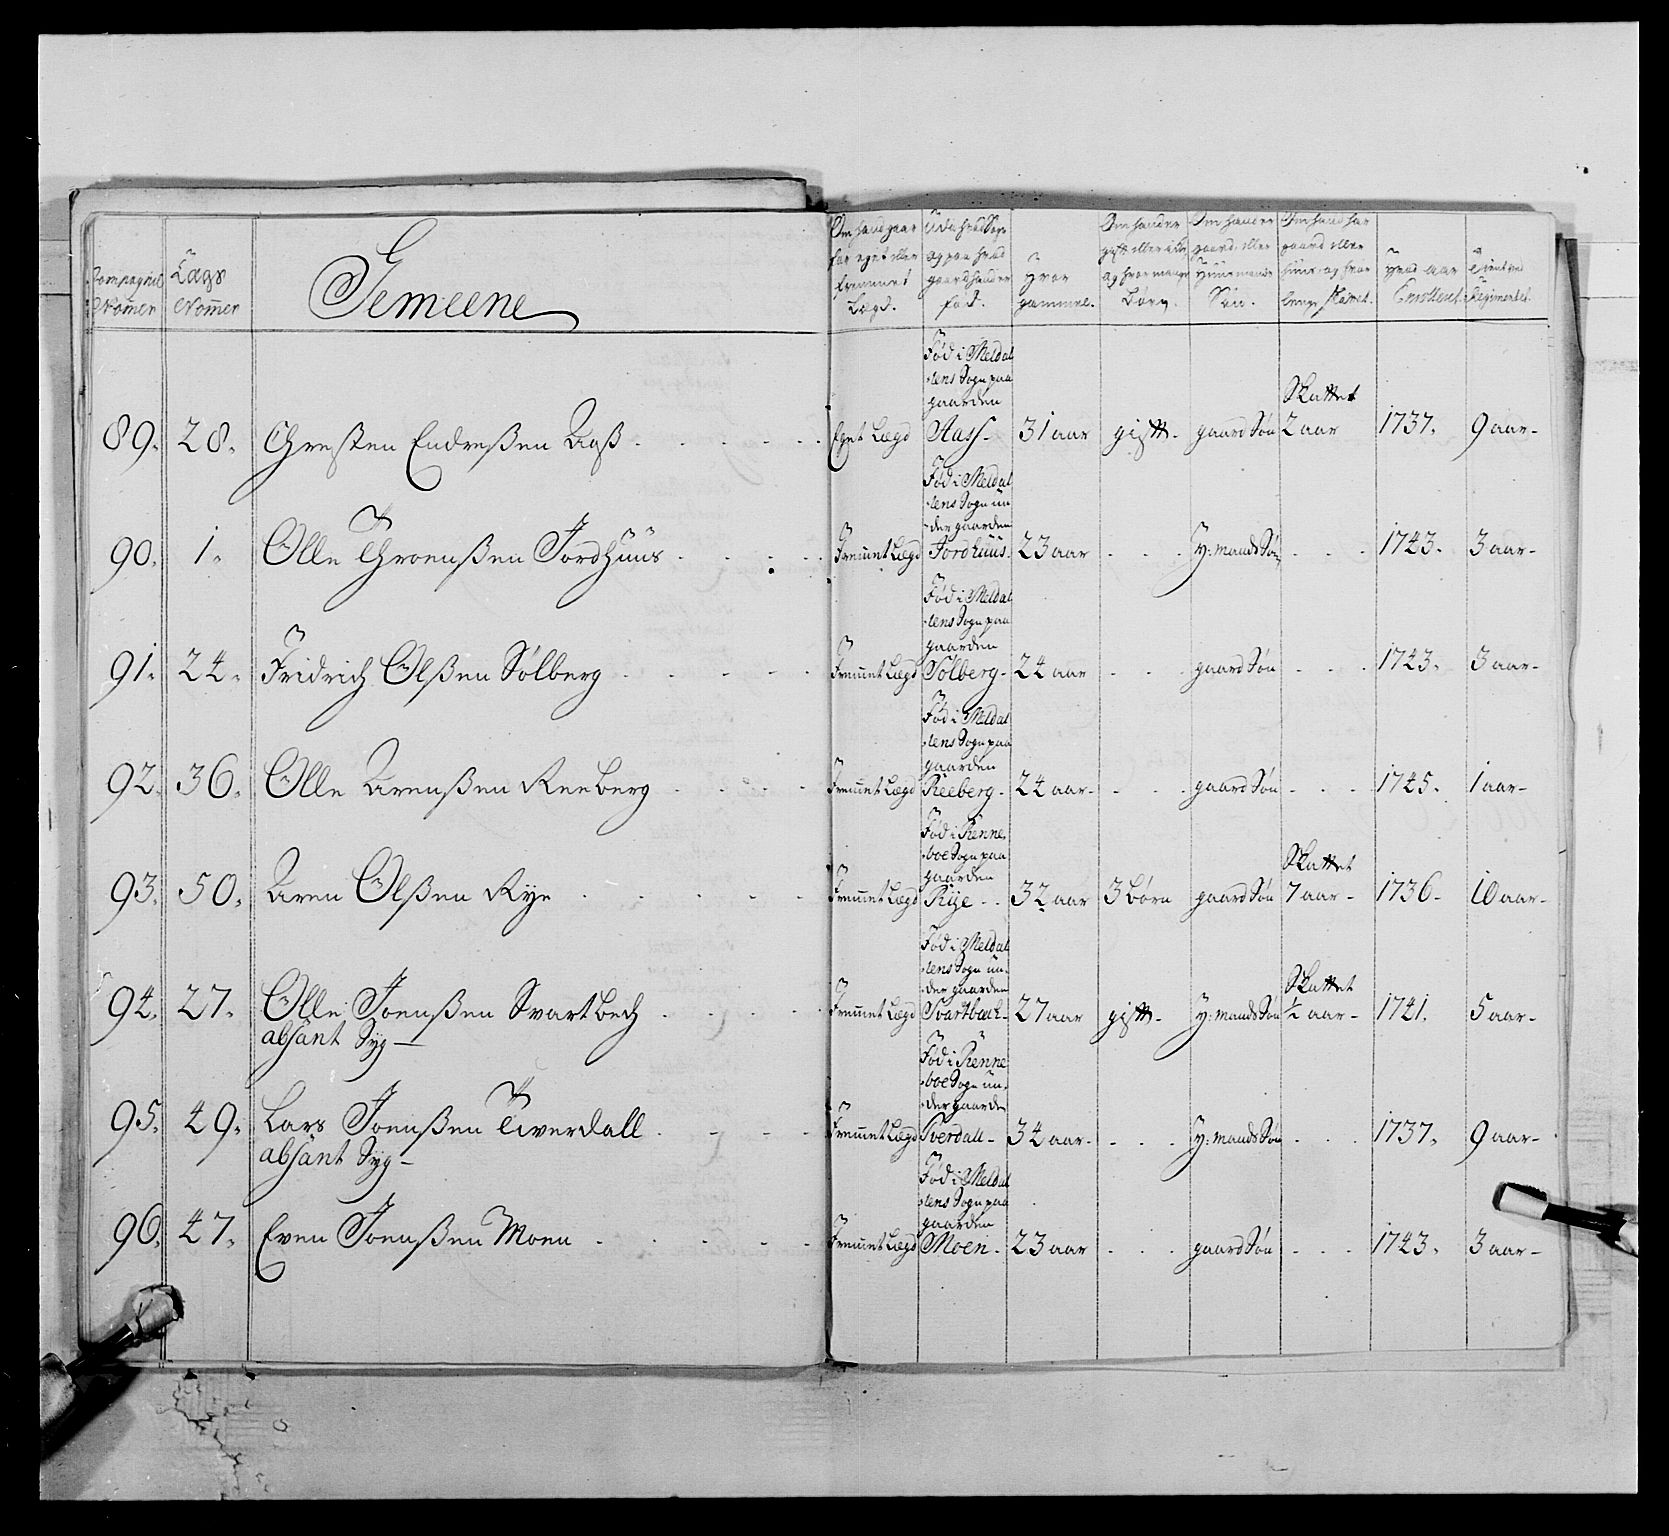 Compagnie Nommer
Lægs Nommer
Gemeene
Om hand gaar for eget eller fremmet Lægd.
Udi hvad Sogn og paa hvad gaard hand er fød.
Hvor gammel.
Om hand er gift eller ikke og hvor mange Børn.
Om hand er gaard eller Huusmands Søn.
Om hand har gaard eller huus og hvor lenge skattet.
Hvad aar Enrolleret.
Tient ved Regimentet.
89. 28. Chresten Endreßen Aaß Eget Lægd Fød i Meldalens Sogn paa gaarden Aass 31 aar gift gaard Søn Skattet 2 aar 1737. 9 aar
90. 1. Olle Throenßen Jordhuus Fremmet Lægd Fød i Meldalens Sogn under gaarden Jordhuus 23 aar H: mands Søn 1743. 3 aar
91. 24. Fridrich Olßen Sølberg Fremmet Lægd Fød i Meldalens Sogn paa gaarden Sølberg 24 aar gaard Søn 1743. 3 aar
92. 36. Olle Arenßen Reeberg Fremmet Lægd Fød i Meldalens Sogn paa gaarden Reeberg 24 aar gaard Søn 1745. 1 aar
93. 50. Aren Olßen Rye Fremmet Lægd Fød i Renneboe Sogn paa gaarden Rye 32 aar 3 børn gaard Søn Skattet 7 aar 1736 10 aar
94. 27. Olle Joenßen Svartbech Fremmet Lægd Fød i Meldalens Sogn under gaarden Svartbæch 27 aar gift H: mands Søn Skattet ½ aar 1741. 5 aar
absant Syg
95. 49. Lars Joenßen Tverdall Fremmet Lægd Fød i Renneboe Sogn under gaarden Tverdall 34 aar H: mands Søn 1737. 9 aar
absant Syg
96. 47. Even Joenßen Moen Fremmet Lægd Fød i Meldalens Sogn paa gaarden Moen 23 aar gaard Søn 1743. 3 aar